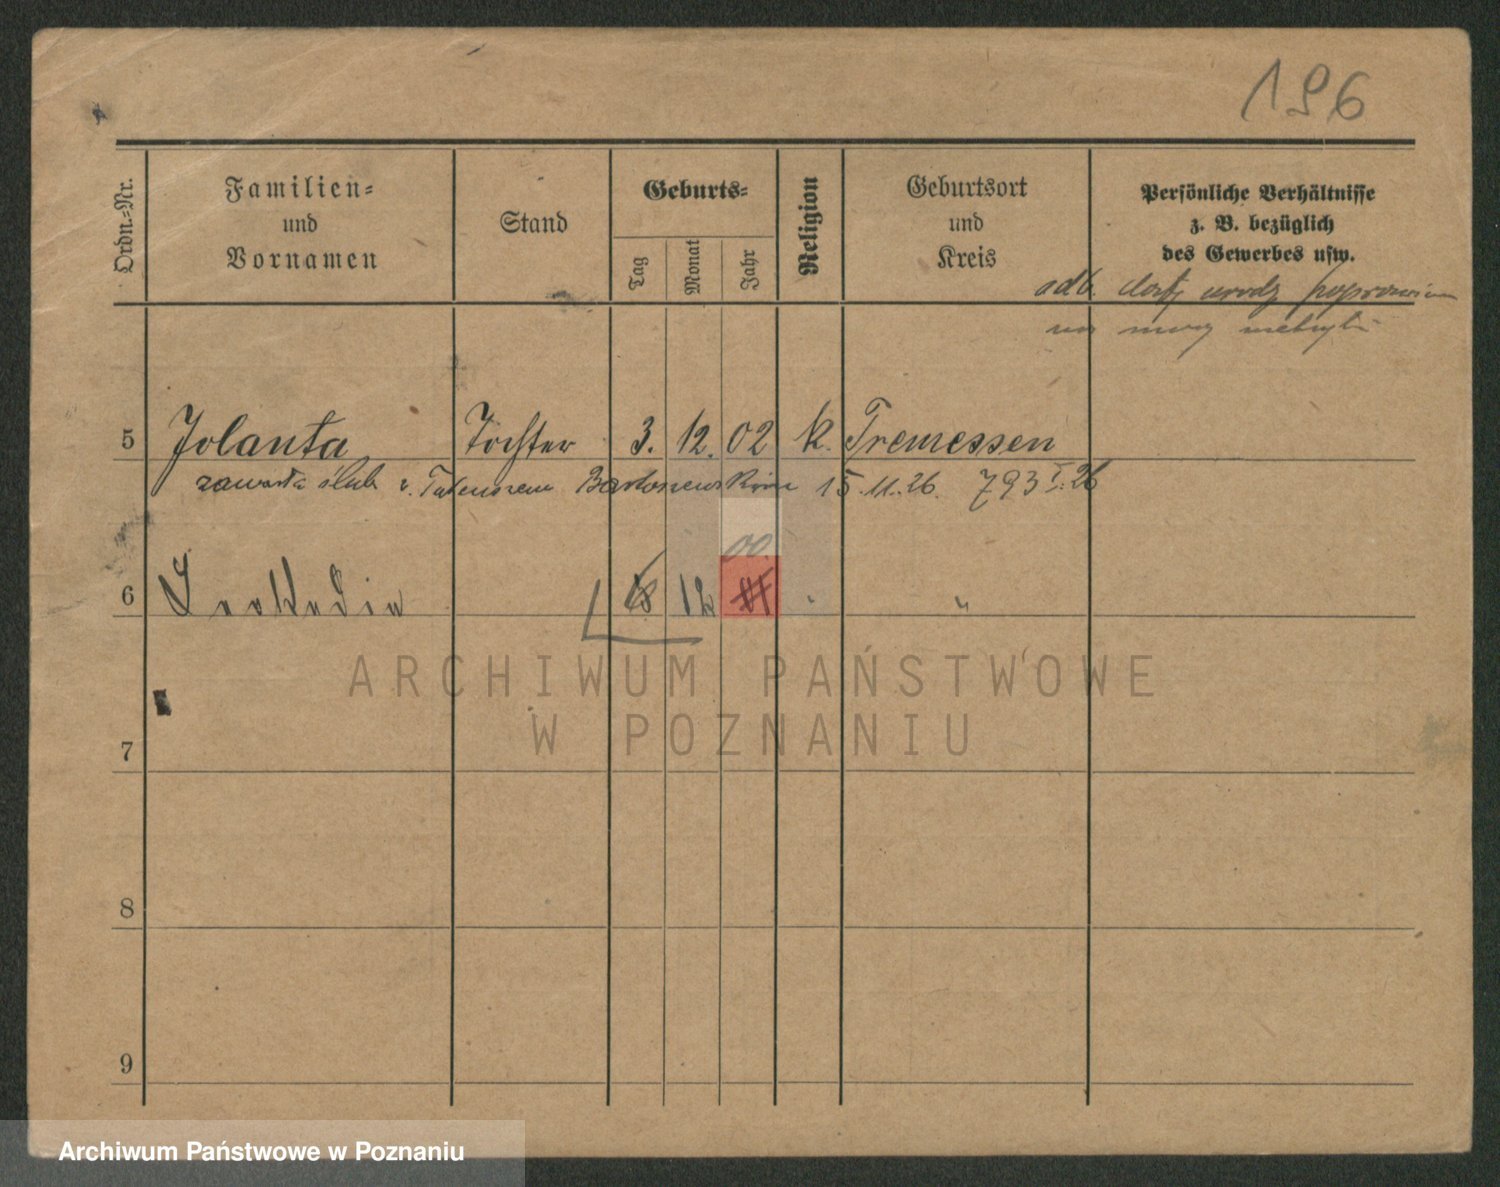 196
Ordn.=Nr.
Familien=
und
Vornamen
Stand
Geburts=
Tag
Monat
Jahr
Religion
Geburtsort
und
Kreis
Persönliche Verhältnisse
z. B. bezüglich
des Gewerbes usw.
daty urodz
5 Jolanta Tochter 3. 12. 02 k. Tremessen
zawarła ślub z. Tadeuszem 15.11.26. 793
00
6 Leokadia 12 "
ARCHIWUM PAŃSTWOWE
W POZNANIU
7
8
9
Archiwum Państwowe w Poznaniu